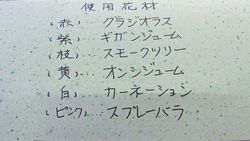 使用花材
(赤)‥グラジオラス
(紫)‥ギガンジューム
(枝)‥スモークツリー
(黄)…オンシジューム
(白)‥カーネーション
(ピンク)…スプレーバラ